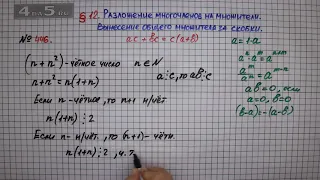 § 12. Разложение многочленов на множители.
Вынесение общего множителя за скобки.
№ 446.
ac + bc = c(a+b)
(n + n²) - чётное число n ∈ N
a⋮c, то ab⋮c
Если n - чётное, то n+1 н/чёт.
n(1+n) ⋮ 2
Если n - н/чёт., то (n+1) - чётн.
n(1+n) ⋮ 2 , ч. т.
a = 1·a
ab = 0, если
a = 0, b = 0
(b-a) = -(a-b)